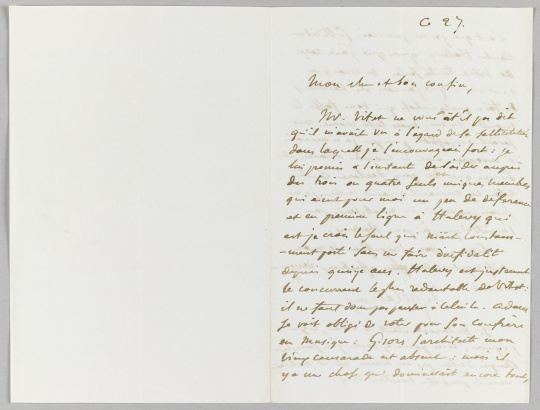 Ce 27.
Mon cher et bon cousin,
Mr. Vitet ne vous a t'il pas dit
qu'il m'avait vu à l'égard de la
dans laquelle je l'encourageai fort : je
lui promis à l'instant de l'aider auprès
des trois ou quatre seuls uniques membres
qui aient pour moi un peu de déférence
et en première ligne à Halevy qui
est je crois le seul qui m'ait constam-
-ment porté sans me faire d'infidélité
depuis quinze ans. Halevy est justement
le concurrent le plus redoutable de Vitet :
il ne faut donc pas penser à celui là. Adam
se voit obligé de voter pour son confrère
en musique : Gisors l'architecte mon
vieux camarade est absent : mais il
y a un chef qui dominerait encore tout,